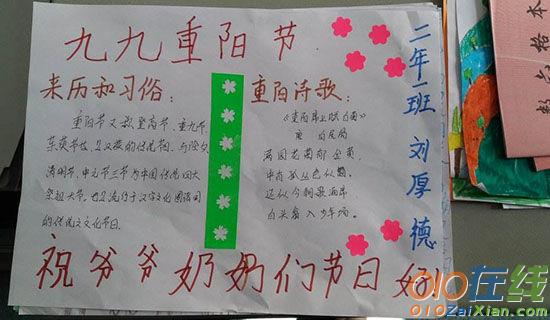 九九重阳节
来历和习俗：
重阳节又叫登高节、重九节、
茱萸节也是汉族的传统节日，与除夕
清明节、中元节三节为中国传统四大
祭祖大节。也是流行于汉字文化圈诸国
的传统文化节日。
重阳诗歌：
《重阳席上赋白菊》
唐 白居易
满园花菊郁金黄，
中有孤丛色似霜。
还似今朝歌酒席
白头翁入少年场。
二年一班 刘厚德
祝爷爷奶奶们节日好
数 格本
010在线
010ZaiXian.com